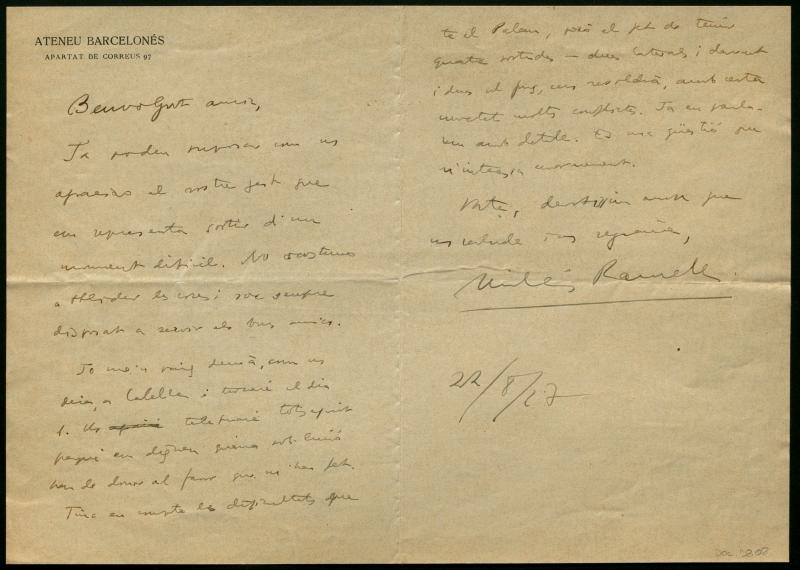 ATENEU BARCELONÉS
APARTAT DE CORREUS 97
Benvolgut amic,
Ja poden suposar com us
apreciao el vostre gest que
em representa sortir d'un
moment difícil. No acostumo
a oblidar les coses i soc sempre
disposat a servir els bons amics.
Jo me'n vaig demà, com us
deia, a Calella i tornaré el dia
1. Us telefonaré tot seguit
perquè em diguen quina solució
hem de donar al favor que m'han fet.
Tinc en compte les dificultats que
té el Palau, però el fet de tenir
quatre sortides — dues laterals i davant
i dues al fons, ens resoldrà, amb certa
molts conflictes. Ja en parla-
rem amb detall. És una qüestió que
m'interessa enormement.
que
us saluda i us regracia,
22/8/27
Doc. 1202